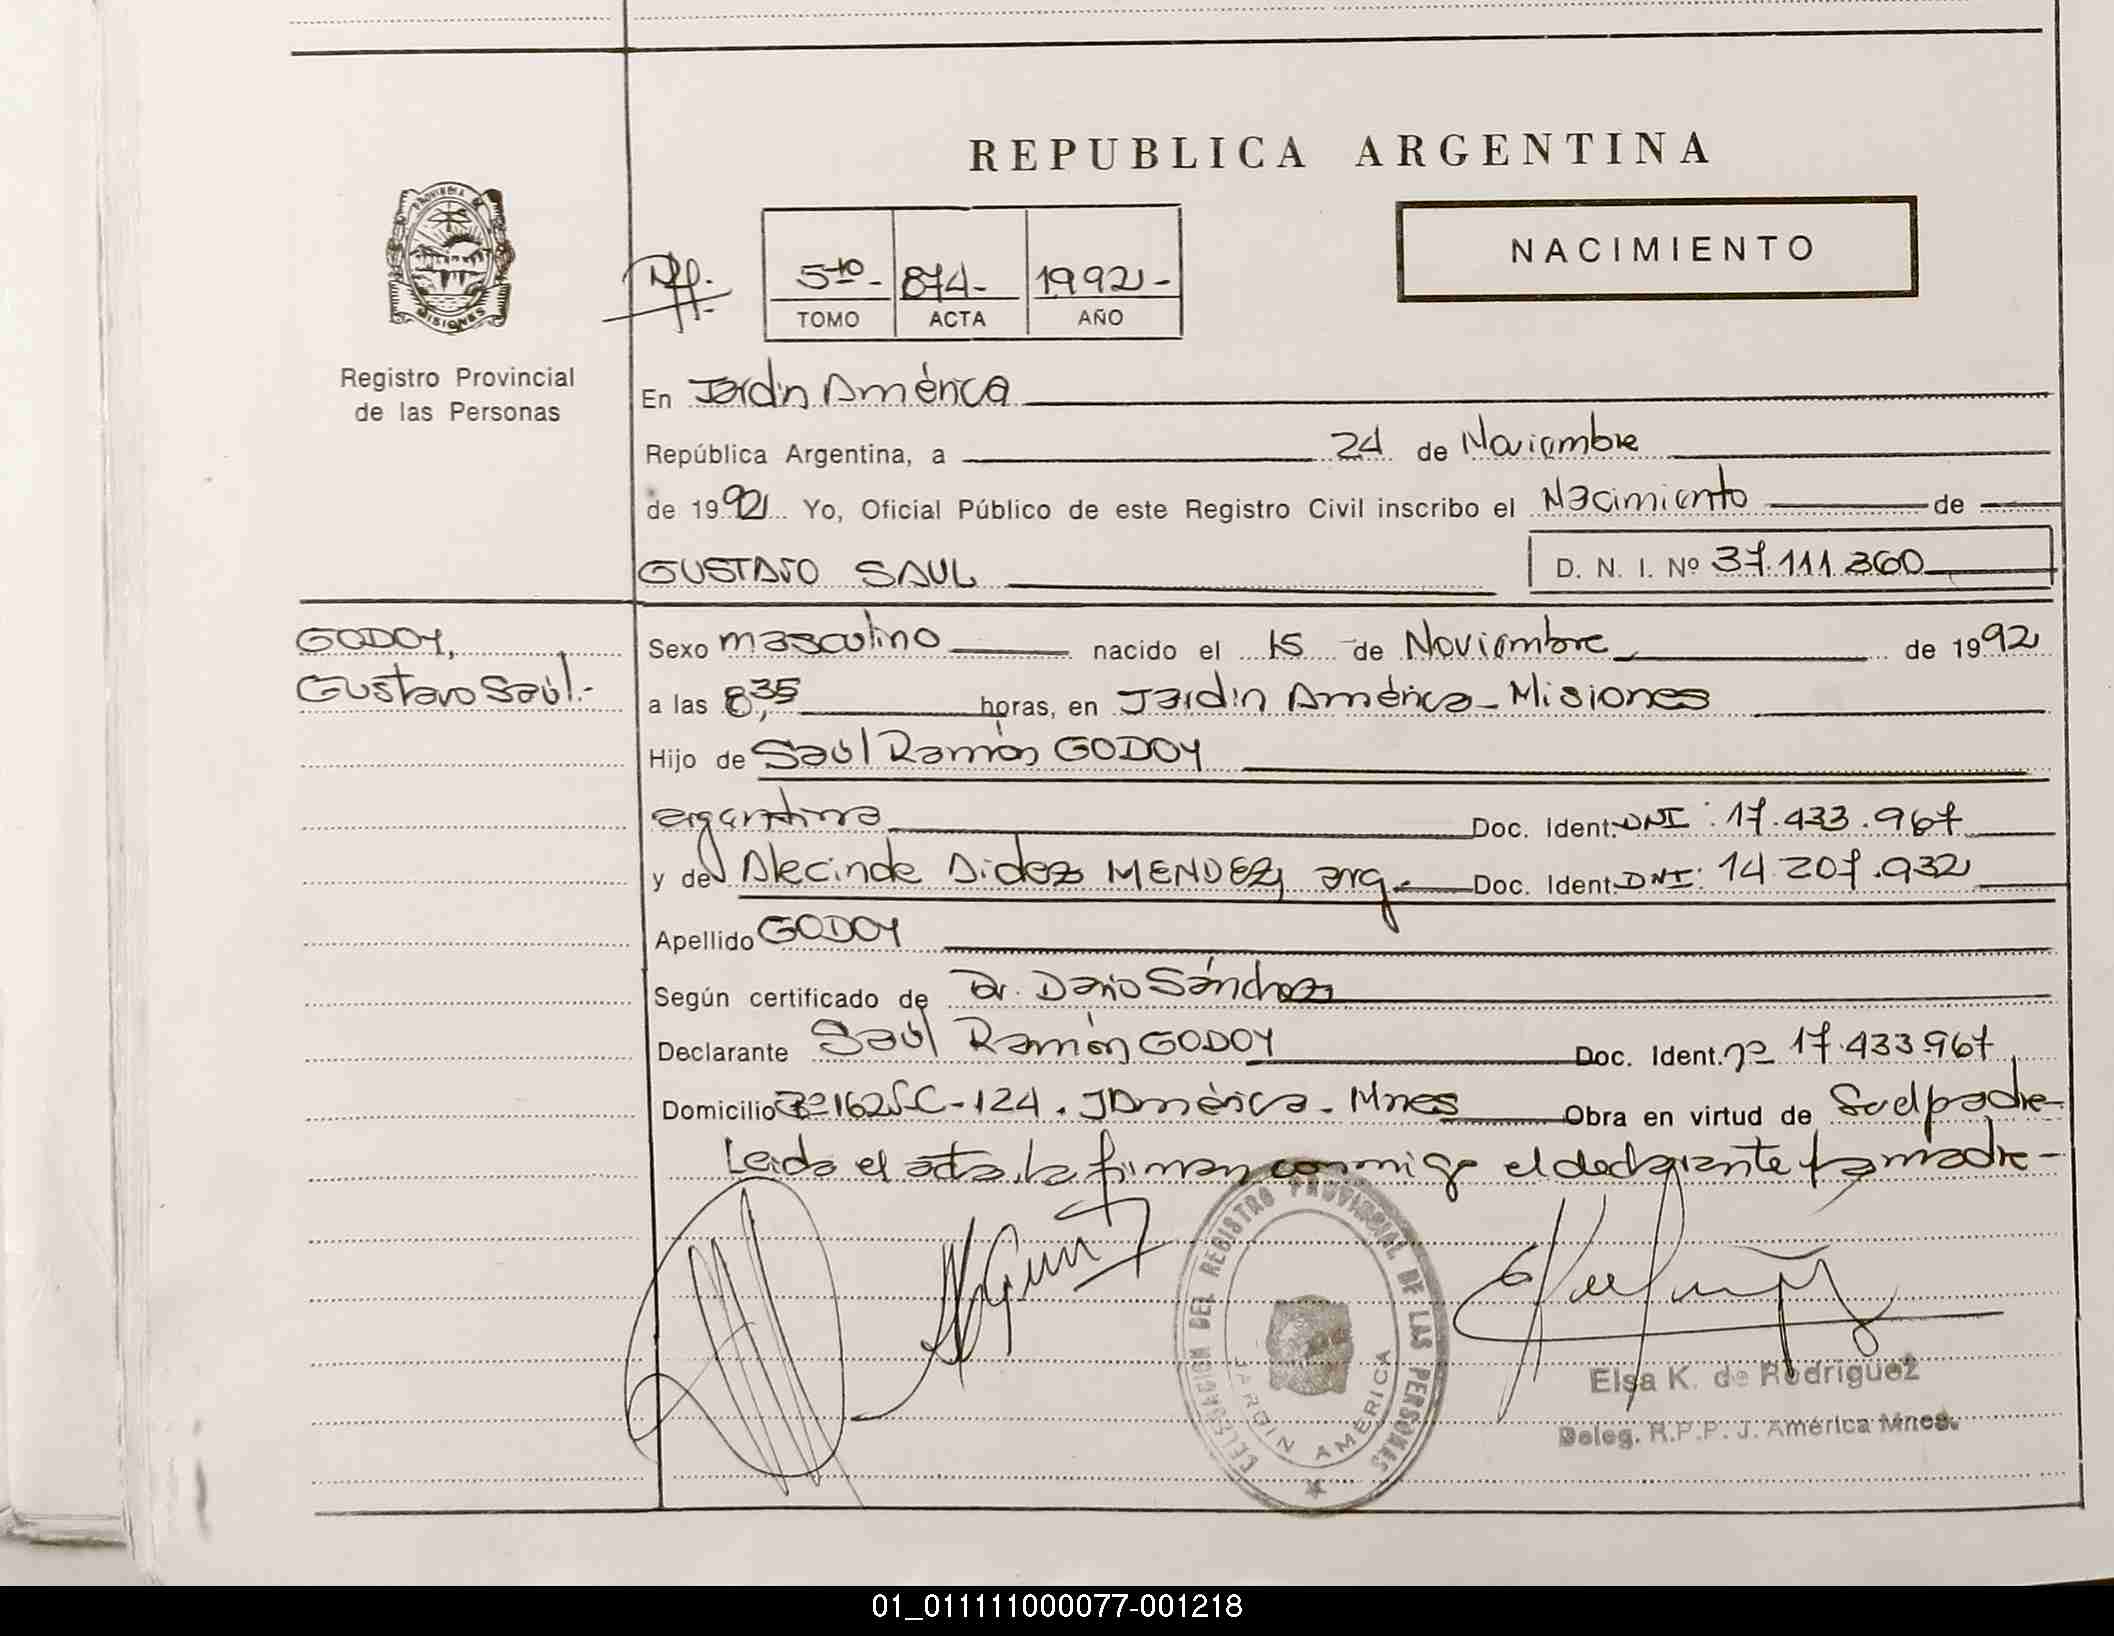 REPUBLICA ARGENTINA
PROVINCIA DE
MISIONES
Registro Provincial
de las Personas
5to- 874- 1992-
TOMO ACTA AÑO
NACIMIENTO
En Jardín América
República Argentina, a 24 de Noviembre
de 1992 Yo, Oficial Público de este Registro Civil inscribo el Nacimiento de
GUSTAVO SAUL D. N. I. Nº 37.111.360
GODOY,
Gustavo Saúl.-
Sexo masculino nacido el 15 de Noviembre de 1992
a las 8,35 horas, en Jardín América - Misiones
Hijo de Saúl Ramón GODOY
argentino Doc. Ident. DNI: 17.433.967
y de MENDEZ, arg.- Doc. Ident. DNI: 14 207.932
Apellido GODOY
Según certificado de Dr. Darío Sánchez
Declarante Saúl Ramón GODOY Doc. Ident. nº 17.433.967
Domicilio C-124. J América - Mnes Obra en virtud de Ser el padre-
Leída el acta, la firman conmigo el declarante y la madre-
DELEGACION DEL REGISTRO PROVINCIAL DE LAS PERSONAS
JARDIN AMERICA
Elsa K. de Rodriguez
Deleg. R.P.P. J. América Mnes.
01_011111000077-001218